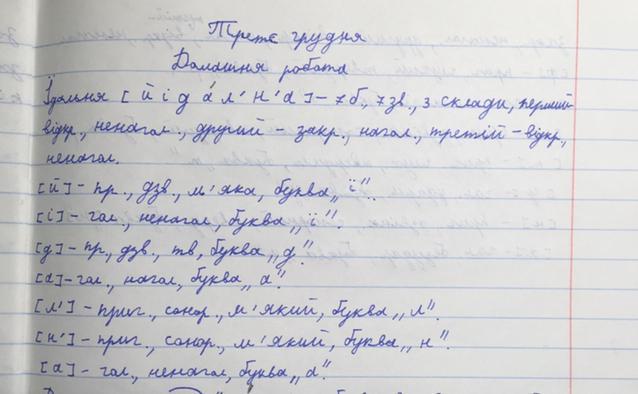 Третє грудня
Домашня робота
Їдальня [ й і д а́ л' н' а ] – 7 б, 7 зв., 3 склади, перший
відкр., ненагол., другий – закр., нагол., третій – відкр,
ненагол.
[й] – пр., дзв., м'яка, буква „ї".
[і] – гол., ненагол, буква „ї".
[д] – пр., дзв., тв, буква „д".
[а] – гол., нагол, буква „а".
[л'] – приг., сонор., м'який, буква „л".
[н'] – приг., сонор., м'який, буква „н".
[а] – гол., ненагол, буква „а".